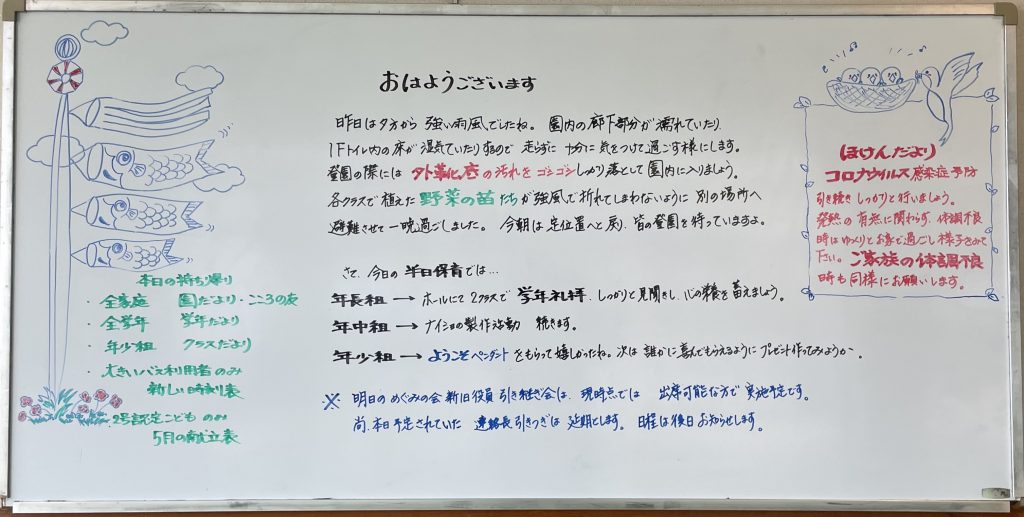 おはようございます
昨日は夕方から 強い雨風でしたね。 園内の廊下部分が濡れていたり
1Fトイレ内の床が湿気ていたりするので 走らずに 十分に気をつけて過ごす様にします。
登園の際には 外靴底の汚れを ゴシゴシしっかり落として園内に入りましょう。
各クラスで植えた 野菜の苗たちが強風で折れてしまわないように 別の場所へ
避難させて一晩過ごしました。 今朝は定位置へと戻り、皆の登園を待っていますよ。
さて、今日の半日保育では…
年長組 → ホールにて2クラスで 学年礼拝、しっかりと見聞きし、心の栄養を蓄えましょう。
年中組 → ナイショの製作活動 続きます。
年少組 → ようこそペンダントをもらって嬉しかったね。次は 誰かに喜んでもらえるように プレゼント作ってみようか。
※ 明日の めぐみの会 新旧役員 引き継ぎ会は、現時点では 出席可能な方で 実施予定です。
尚、本日予定されていた 連絡長引きつぎは 延期とします。 日程は後日お知らせします。
本日の持ち帰り
・全家庭 園だより・こころの友
・全学年 学年だより
・年少組 クラスだより
・大きいバス利用者のみ
新しい時刻表
・2号認定こども のみ
5月の献立表
ほけんだより
コロナウイルス感染症予防
引き続き しっかりと行いましょう。
発熱の有無に関わらず、体調不良
時はゆっくりとお家で過ごし様子をみて
下さい。ご家族の体調不良
時も同様にお願いします。